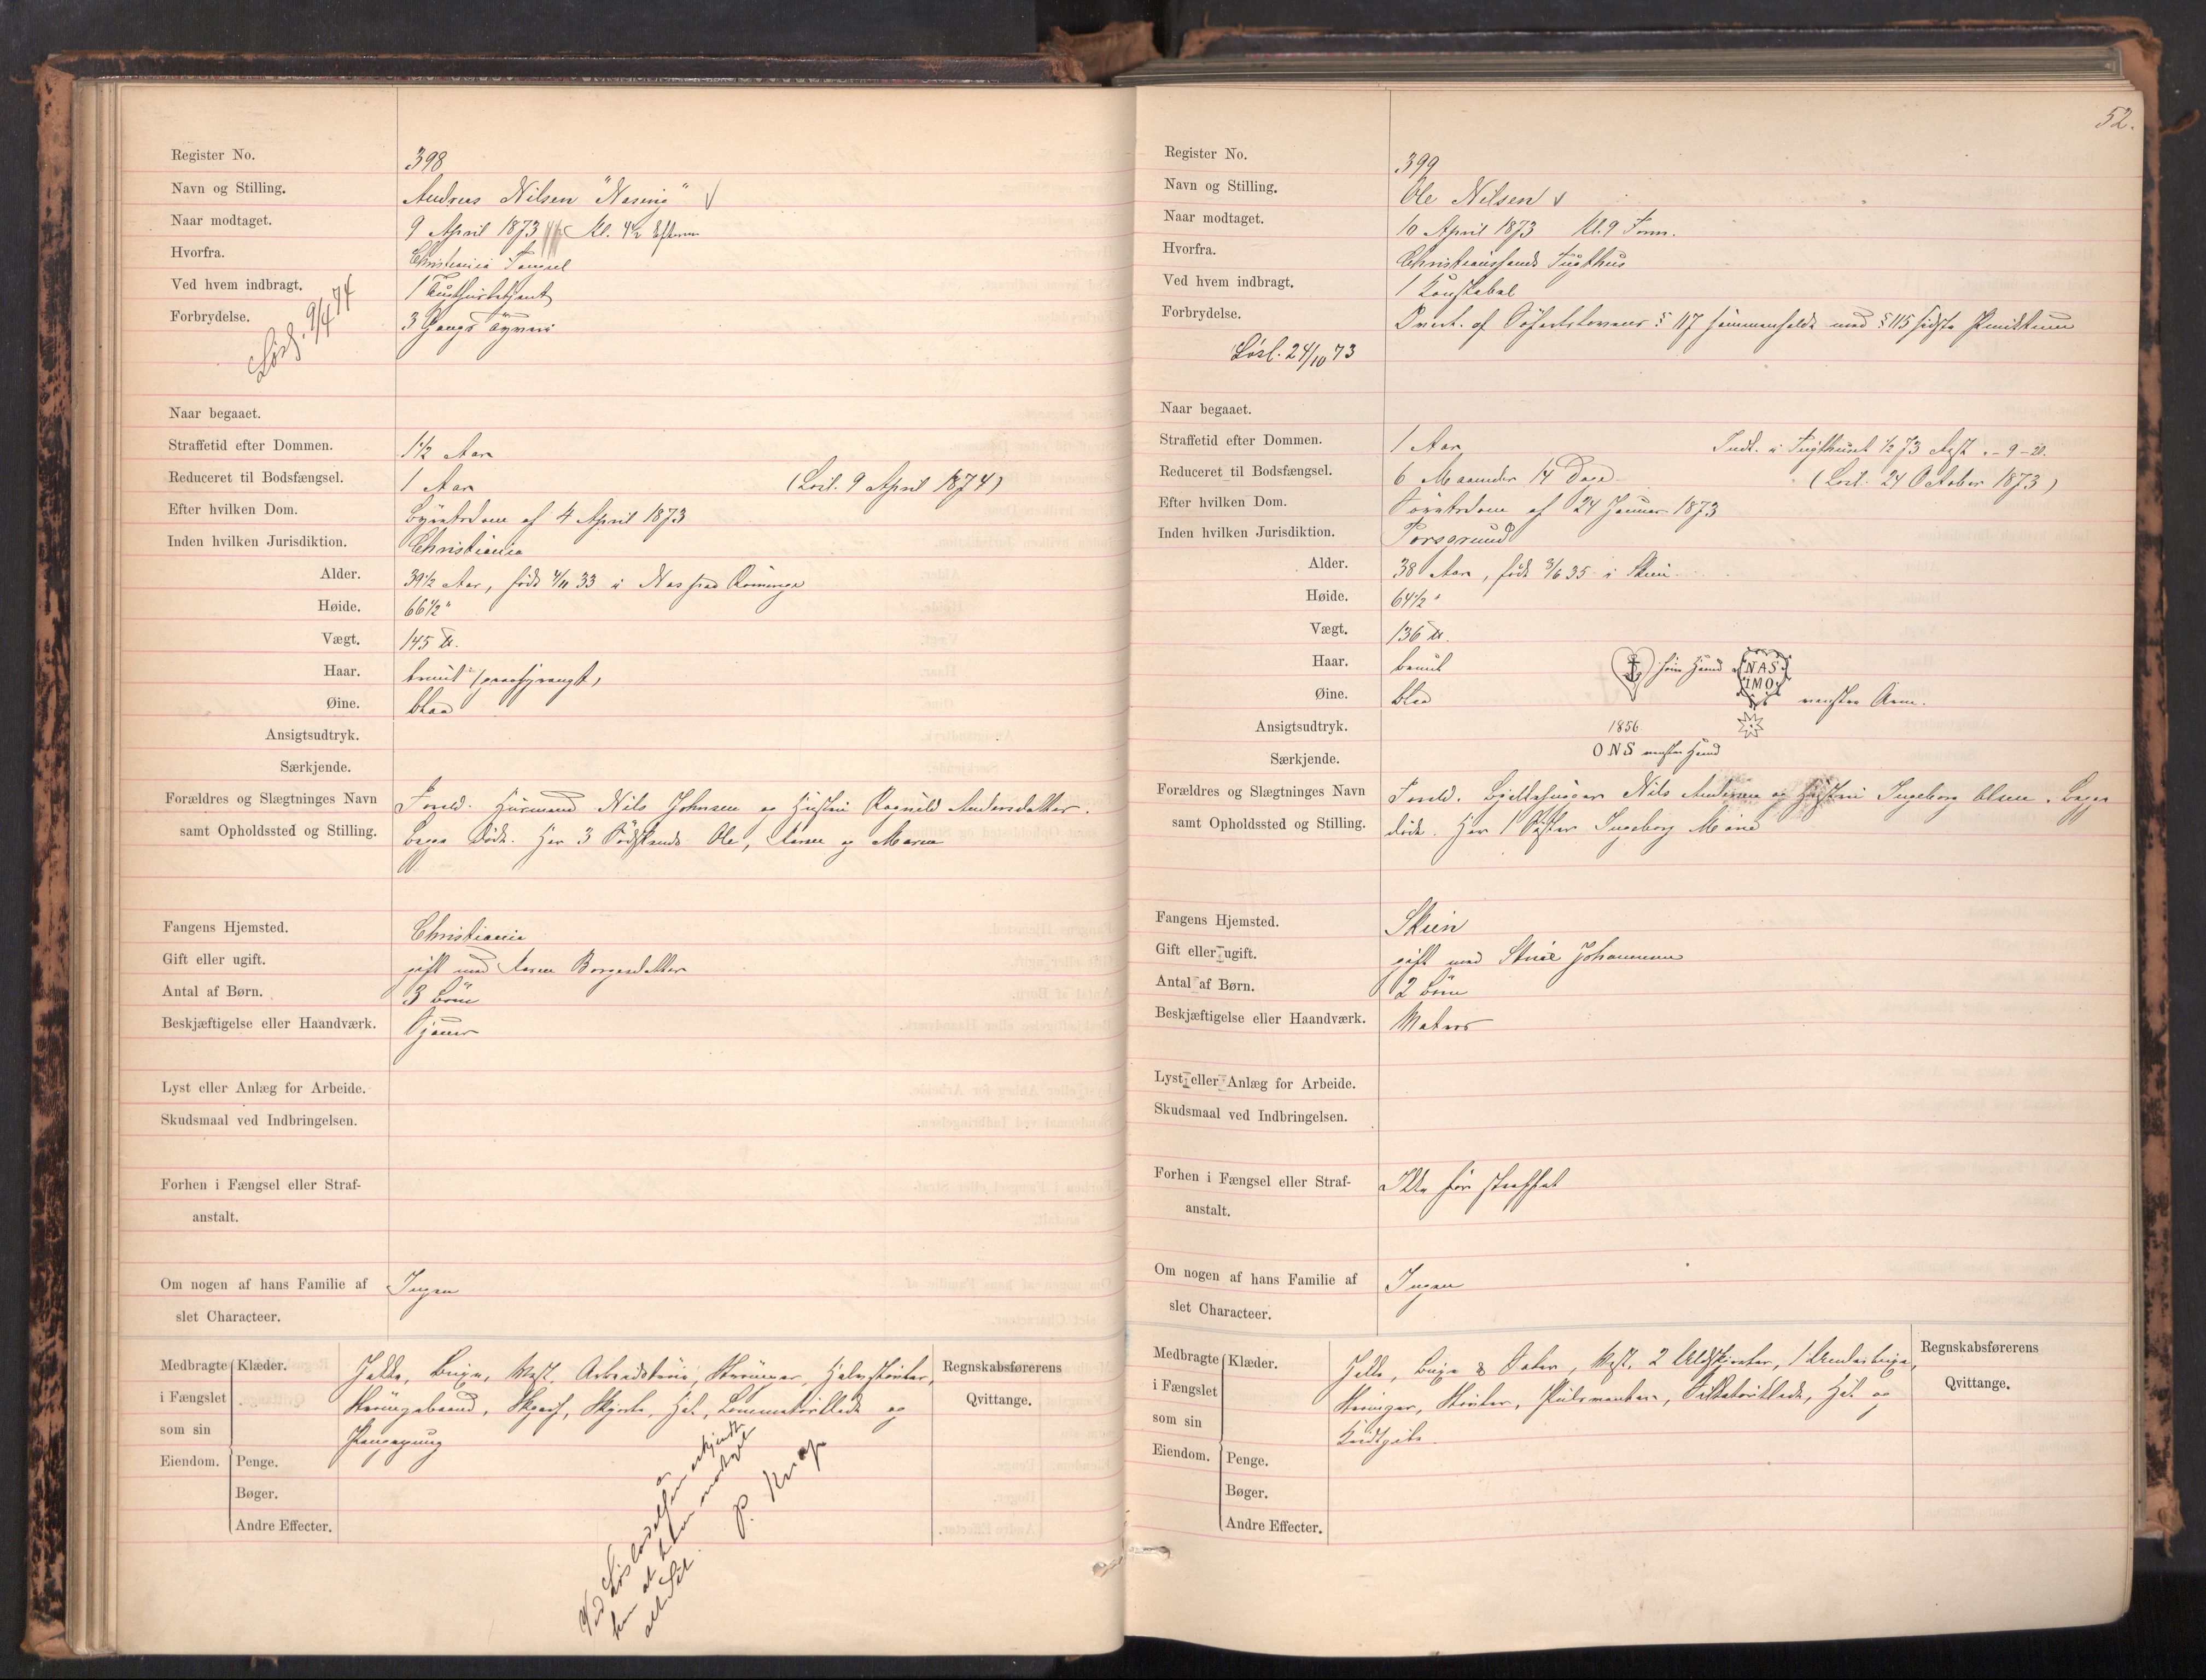 Register No. 398
Navn og Stilling. Andreas Nilsen "Næseng"
Naar modtaget. 9 April 1873 Kl. 4½ Efterm
Hvorfra. Christiania Fængsel
Ved hvem indbragt. 1 Tugthusbetjent
Forbrydelse. 3 Gangs Tyveri
Løsl. 9/4 74
Naar begaaet.
Straffetid efter Dommen. 1½ Aar
Reduceret til Bodsfængsel. 1 Aar (Løsl. 9 April 1874)
Efter hvilken Dom. Byretsdom af 4 April 1873
Inden hvilken Jurisdiktion. Christiania
Alder. 39½ Aar, født 4/11 33 i Næs paa Romerige
Høide. 66½"
Vægt. 145 ℔.
Haar. bruunt
Øine. blaa
Ansigtsudtryk.
Særkjende.
Forældres og Slægtninges Navn Foreld. Husmand Nils Johnsen og Hustru Ragnild Andersdatter.
samt Opholdssted og Stilling. begge døde. Har 3 Sødskende Ole, Karen og Maren
Fangens Hjemsted. Christiania
Gift eller ugift. gift med Karen Borgersdatter
Antal af Børn. 3 Børn
Beskjæftigelse eller Haandværk. Tjener
Lyst eller Anlæg for Arbeide.
Skudsmaal ved Indbringelsen.
Forhen i Fængsel eller Straf-
anstalt.
Om nogen af hans Familie af Ingen
slet Characteer.
Medbragte Klæder. Jakke, Buxe, Vest, Arbeidstrøie, Strømper, Halvstøvler,
i Fængslet Skjerf, Skjorte, Hat, Lommetørklæde og
som sin Pengepung
Eiendom. Penge.
Bøger.
Andre Effecter.
Regnskabsførerens
Qvittange.
Ved Løsladelsen erkjendte
han at have modtaget
alt sit.
P. Knap
52.
Register No. 399
Navn og Stilling. Ole Nilsen
Naar modtaget. 10 April 1873 Kl. 9 Form.
Hvorfra. Christianssands Tugthus
Ved hvem indbragt. 1 Konstabel
Forbrydelse. Overt. af Søfartslovens § 117 sammenholdt med § 115 sidste Punktum
Løsl. 24/10 73
Naar begaaet.
Straffetid efter Dommen. 1 Aar Indt. i Tugthuset ½ 73
Reduceret til Bodsfængsel. 6 Maaneder 14 Dage (Løsl. 24 October 1873)
Efter hvilken Dom. Søretsdom af 24 Januar 1873
Inden hvilken Jurisdiktion. Porsgrund
Alder. 38 Aar, født 3/6 35 i Skien
Høide. 64½"
Vægt. 136 ℔.
Haar. bruunt høire Haand NAS
IMO
Øine. blaa venstre Arm.
Ansigtsudtryk. 1856
Særkjende. ONS venstre Haand
Forældres og Slægtninges Navn Foreld. Nils Andersen og Hustru Ingeborg Olsen. begge
samt Opholdssted og Stilling. døde. Har 1 Søster Ingeborg Marie
Fangens Hjemsted. Skien
Gift eller ugift. gift med Johannesen
Antal af Børn. 2 Børn
Beskjæftigelse eller Haandværk. Matros
Lyst eller Anlæg for Arbeide.
Skudsmaal ved Indbringelsen.
Forhen i Fængsel eller Straf- Ikke før straffet
anstalt.
Om nogen af hans Familie af Ingen
slet Characteer.
Medbragte Klæder. Jakke, Buxe, Vest, 2 Uldskjorter, 1 Underbuxe,
i Fængslet Strømper, Støvler, Pulsvanter, Silketørklæde, Hat og
som sin
Eiendom. Penge.
Bøger.
Andre Effecter.
Regnskabsførerens
Qvittange.